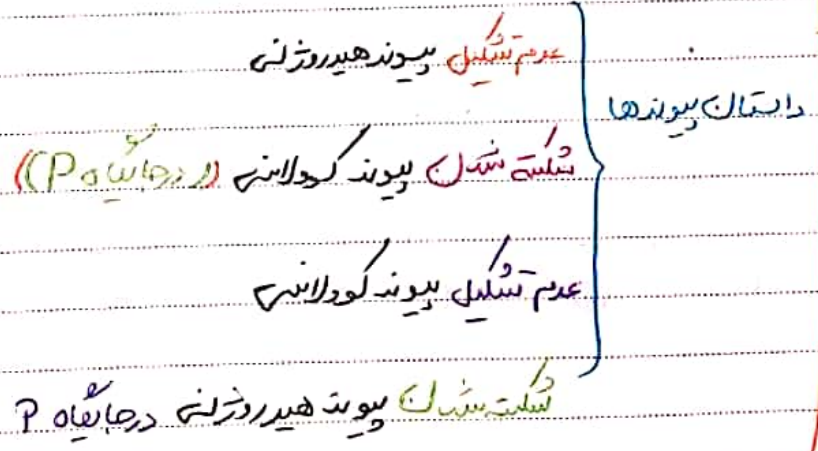 داستان پیوندها
عدم تشکیل پیوند هیدروژنی
شکسته شدن پیوند کووالانسی ((در جایگاه P))
عدم تشکیل پیوند کووالانسی
شکسته شدن پیوند هیدروژنی در جایگاه P